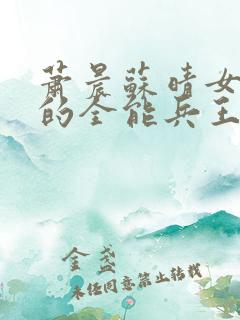 萧晨蘇晴女
的全能兵王
金盏
未经同意禁止转载